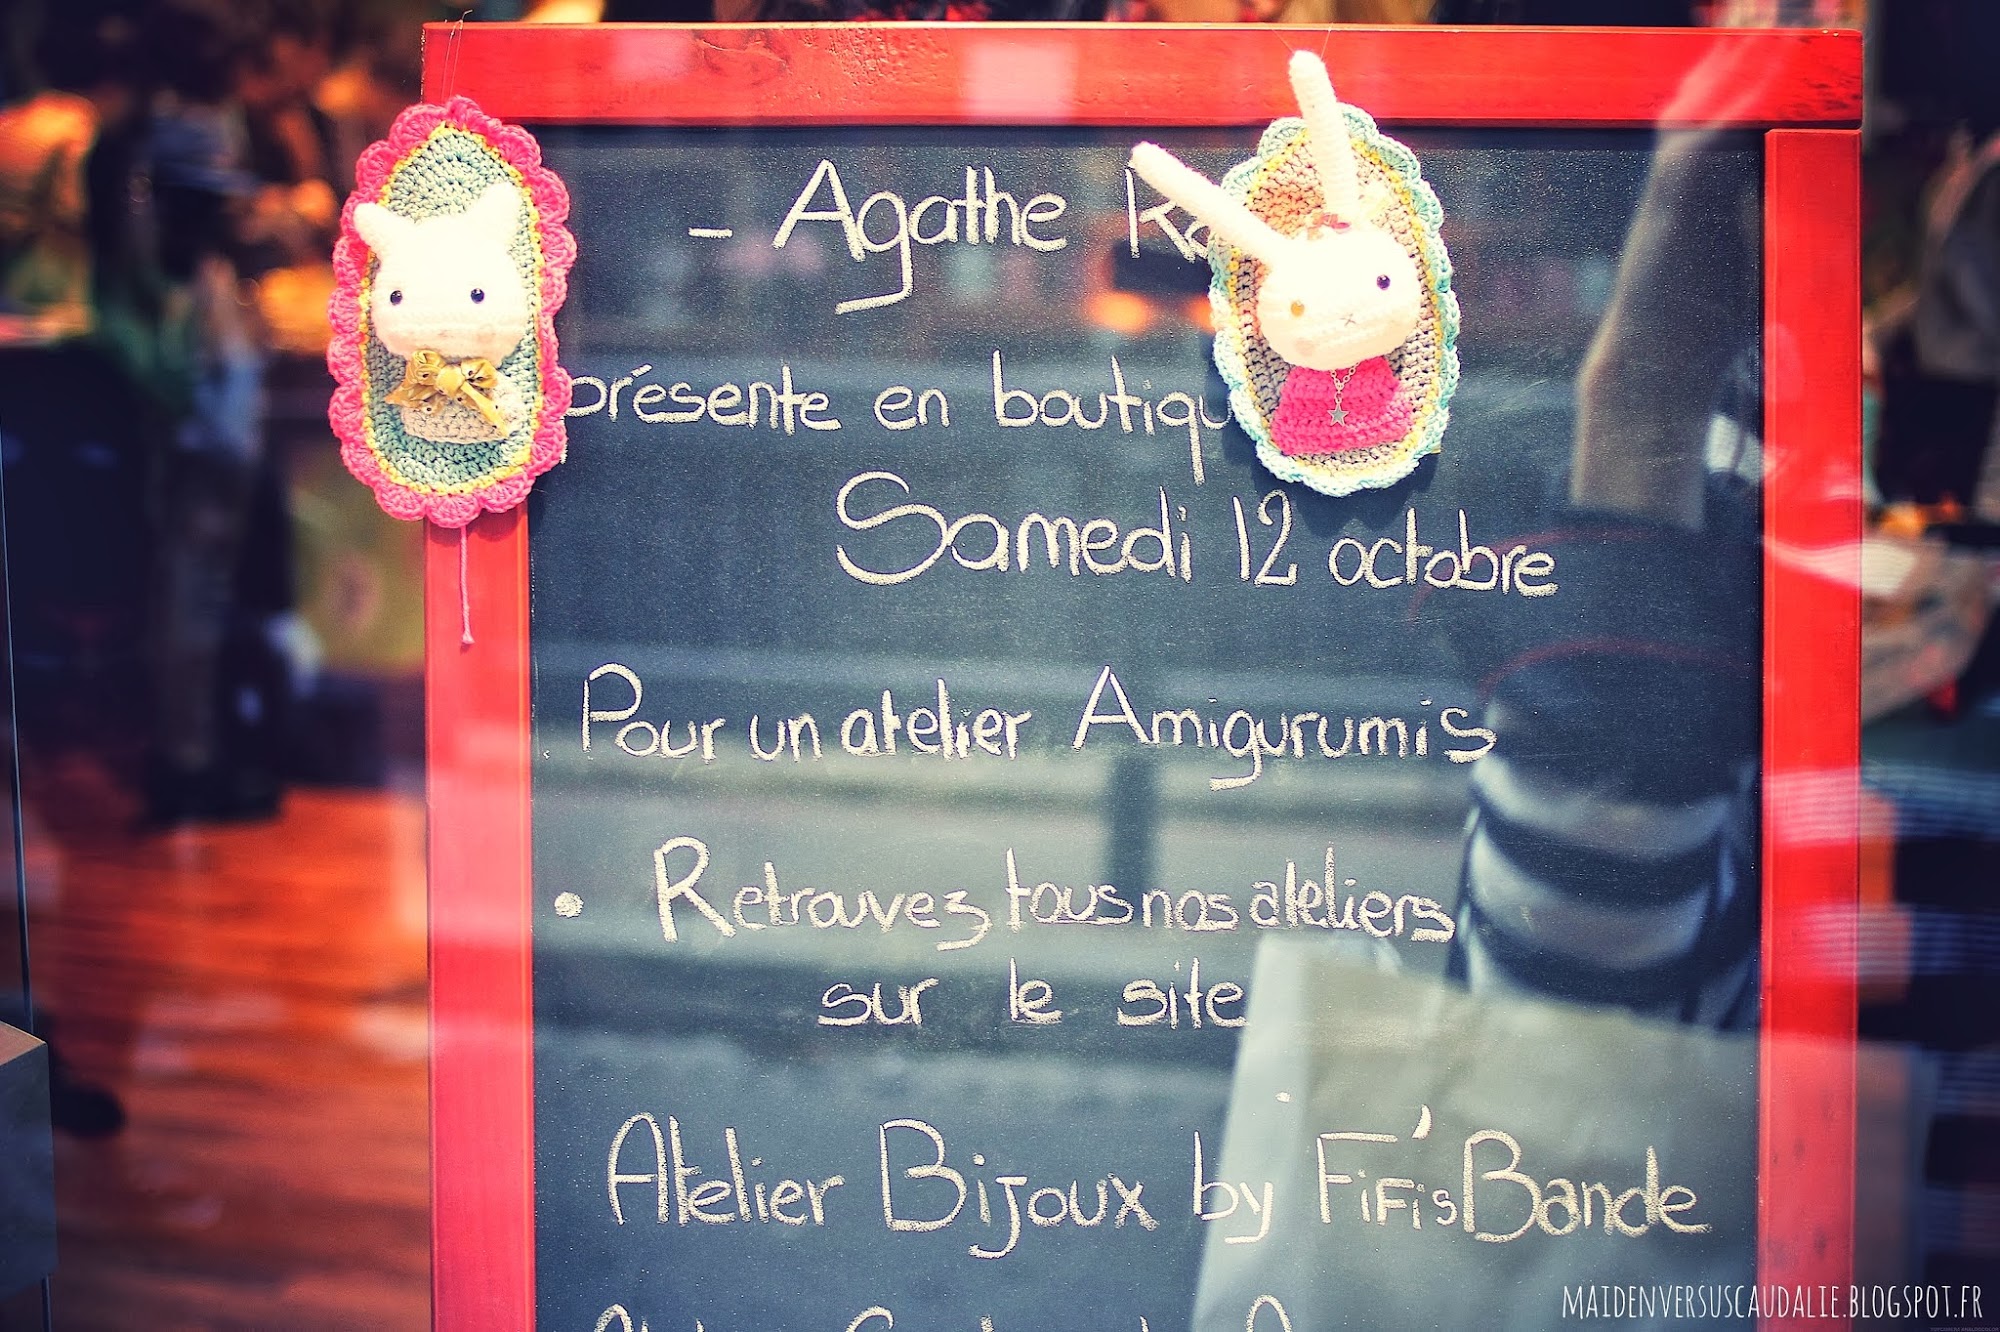 - Agathe
présente en
Samedi 12 octobre
Pour un atelier Amigurumis
• Retrouvez tous nos ateliers
sur le site
Atelier Bijoux by FiFisBande
MAIDENVERSUSCAUDALIE.BLOGSPOT.FR